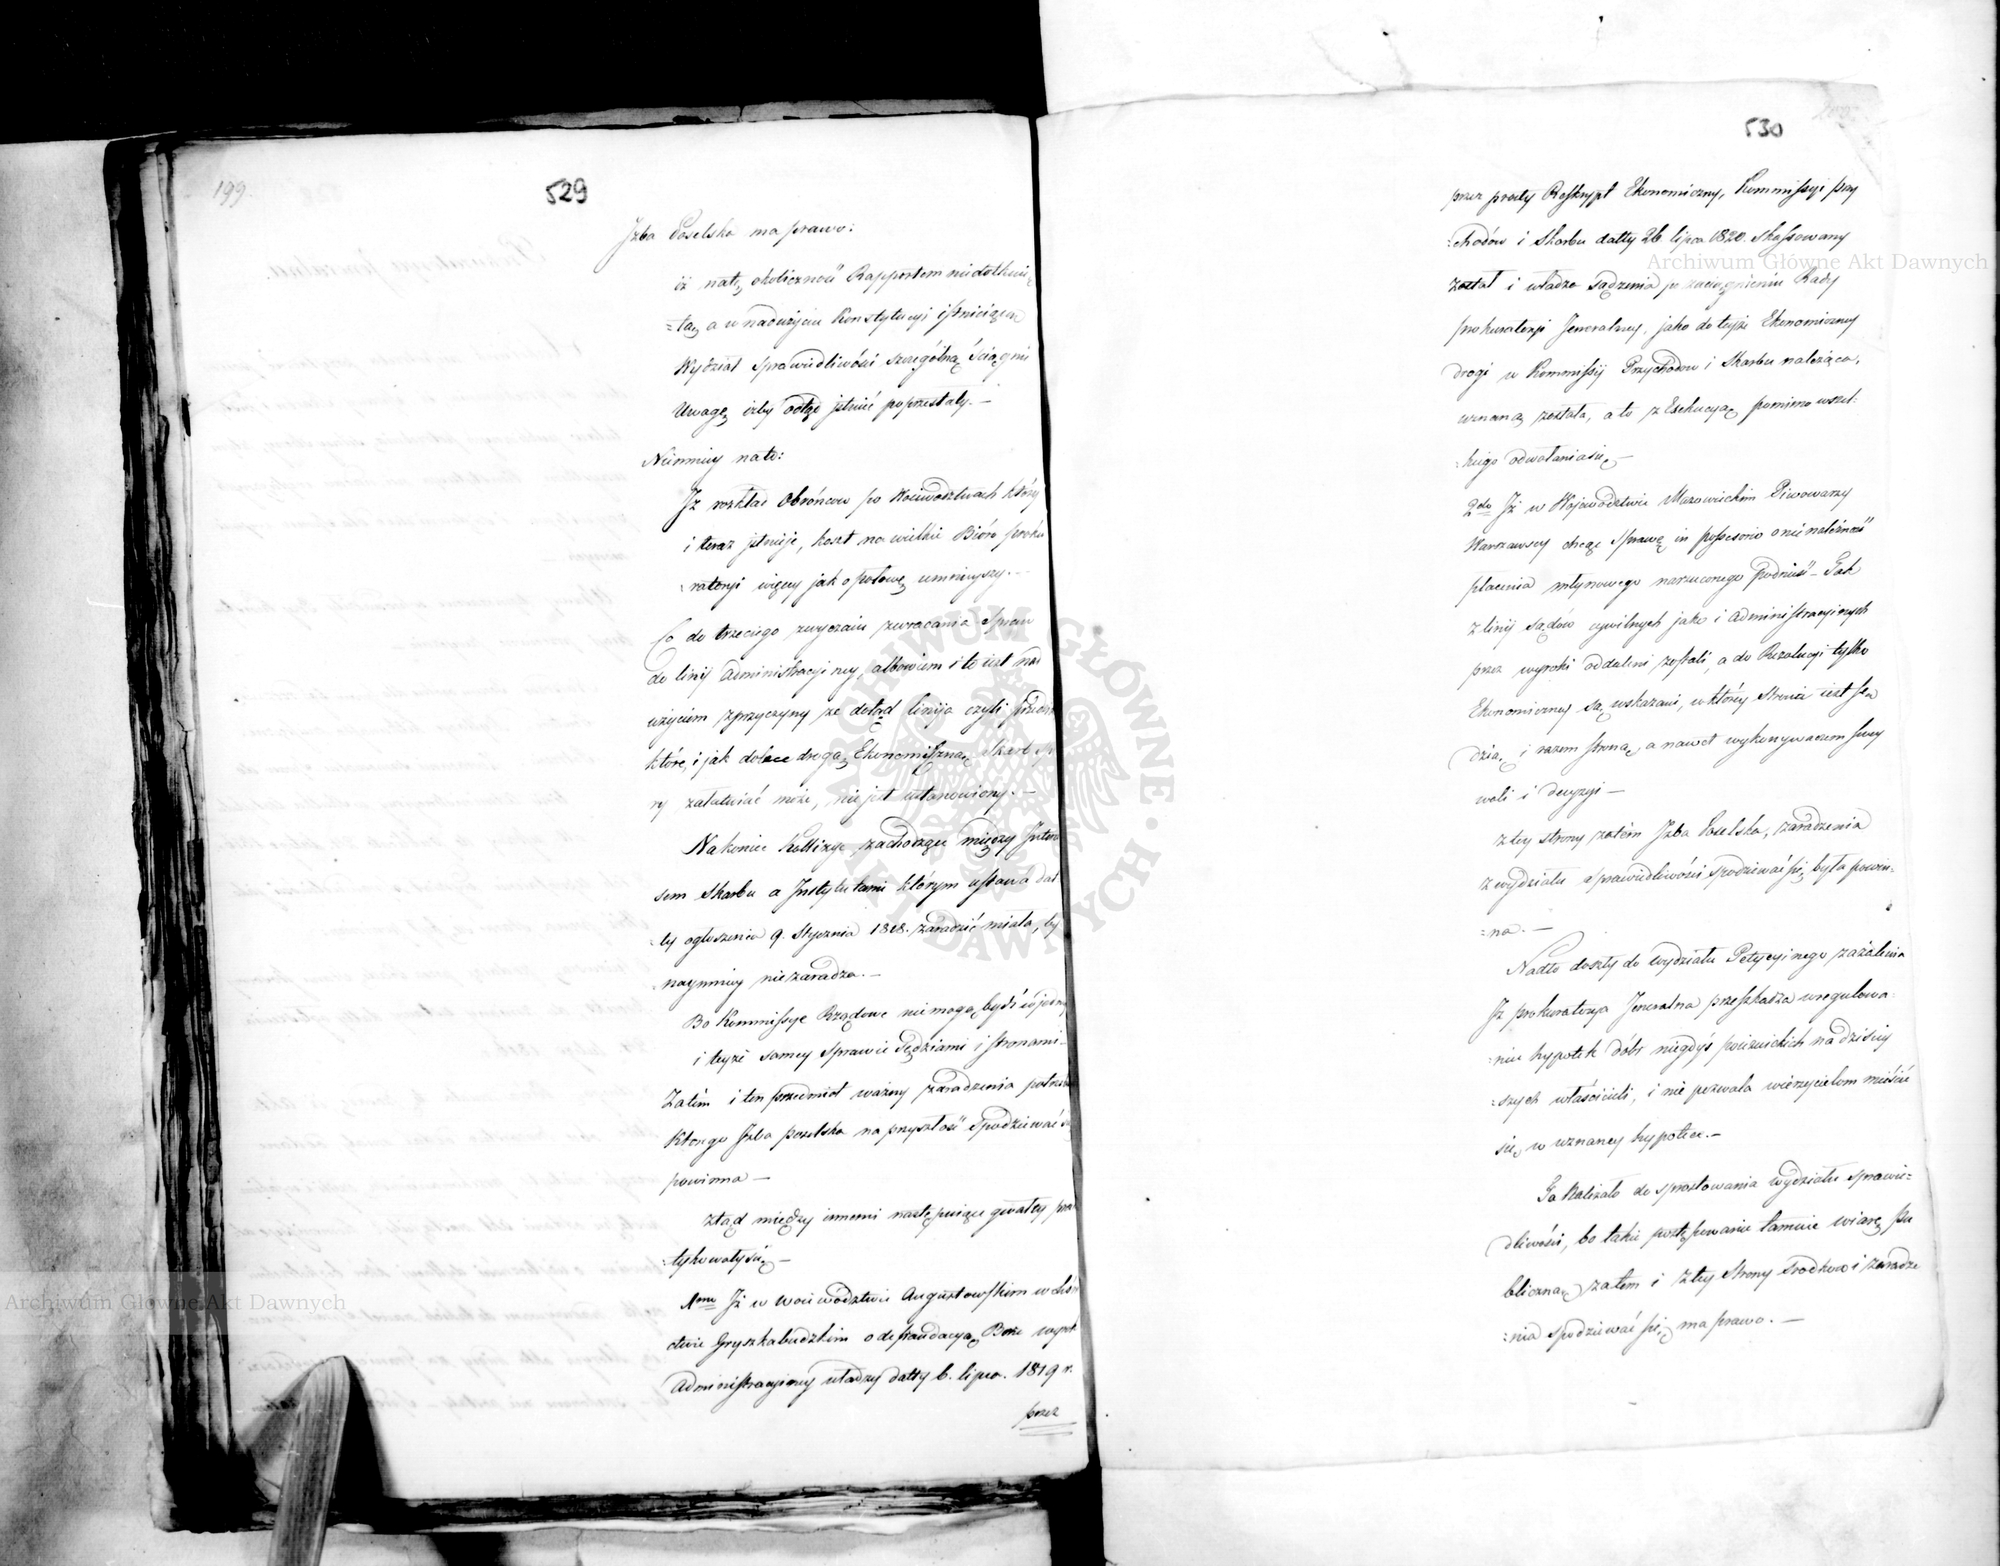 199.
529
Izba Poselska ma prawo:
iż na tę okoliczność Rapportem niedotknię
=tą, a w nadużyciu Konstytucyi istniejącą
Wydział Sprawiedliwości szczególną ściągnie
Uwagę, iżby odtąd istnieć poprzestały.—
Niemniey na to:
Iż rozkład Obrońców po Woiewodztwach który
i teraz istnieje, koszt na wielkie Bióro proku
=ratoryi więcey jak o połowę umnieyszy.—
Co do trzeciego zwyczaiu zwracania Spraw
do linij Administracyiney, albowiem i to iest nad
użyciem z przyczyny że dotąd linija czyli przedm
które, i jak dalece drogą Ekonomiczną Skarb sp
ry załatwiać może, nie jest ustanowiony.—
Nakoniec Kollizye zachodzące między Intere
sem Skarbu a Instytutami którym ustawa dat
=ty ogłoszenia 9. Stycznia 1818. zaradzić miała, by
naymniey nie zaradza.—
Bo Kommissye Rządowe nie mogą bydź w jedney
i teyże samey Sprawie Sędziami i stronami.—
Zatém i ten przedmiot ważny zaradzenia potrzeb
którego Izba poselska na przyszłość spodziewać się
powinna—
ztąd między innemi następuiące gwałty prak
=tykowały się—
1mo Iż w Woiewództwie Augustowskiem w ekono
ctwie Gryszkabudzkim o defraudacyą Boże wyrok
Administracyiney władzy datty 6. lipca. 1819 r.
przez
530
przez prosty Reskrypt Ekonomiczny, Kommissyi przy
=chodów i Skarbu datty 26 lipca 1820. skassowany
został i władza sądzenia po zaciągnieniu Rady
prokuratoryi Jeneralney, jako do teyże Ekonomiczney
drogi w Kommissyi Przychodów i Skarbu należąca,
uznaną została, a to z Exekucyą pomimo wszel:
=kiego odwołania się—
2do Iż w Wojewodztwie Mazowieckim Piwowarzy
Warszawscy chcąc Sprawę in possesorio o nienależność
płacenia młynowego narzuconego podnieść— Tak
z linij sądów cywilnych jako i Administracyinych
przez wyroki oddaleni zostali, a do Rezolucyi tylko
Ekonomiczney są wskazani, w którey Strona iest Sę
dzią, i razem stroną, a nawet wykonywaczem swey
woli i decyzyi—
z tey strony zatém Izba Poselska, zaradzenia
z wydziału sprawiedliwości spodziewać się była powin=
=na.—
Nadto doszły do wydziału Petycyinego zażalenia
Iż prokuratorya Jeneralna przeszkadza uregulowa=
niu hypotek dóbr niegdyś poiezuickich na dzisiey
=szych właścicieli, i nie pozwala wierzycielom mieścić
się w uznaney hypotece.—
Ta należało do sprostowania wydziału sprawie=
dliwości, bo takie postępowanie łamie wiarę pu
bliczną, zatem i z tey Strony środków i zaradze
=nia spodziewać się ma prawo.—
Archiwum Główne Akt Dawnych
Archiwum Główne Akt Dawnych
ARCHIWUM GŁÓWNE AKT DAWNYCH